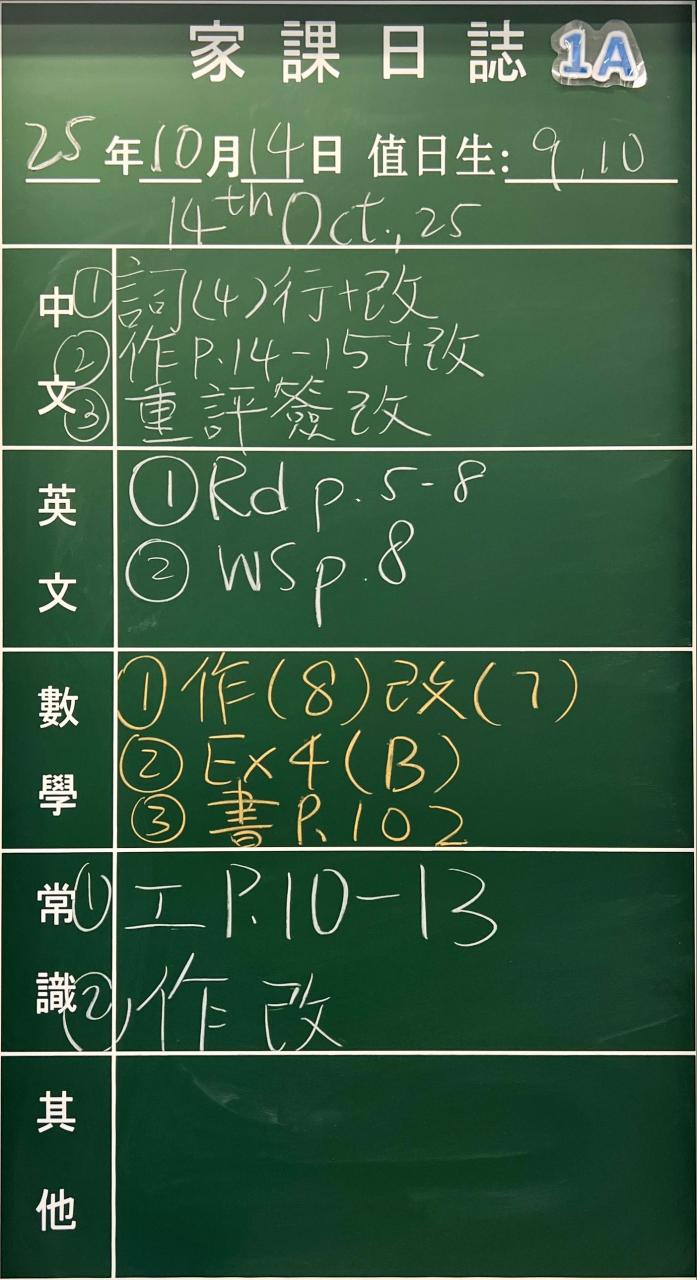 家課日誌 1A
25年10月14日 值日生: 9, 10
14th Oct., 25
中文
① 詞(4)行+改
② 作P.14-15+改
③ 重評簽改
英文
① Rd p. 5-8
② WS p. 8
數學
① 作(8)改(7)
② Ex4(B)
③ 書P.102
常識
① 工P.10-13
② 作改
其他